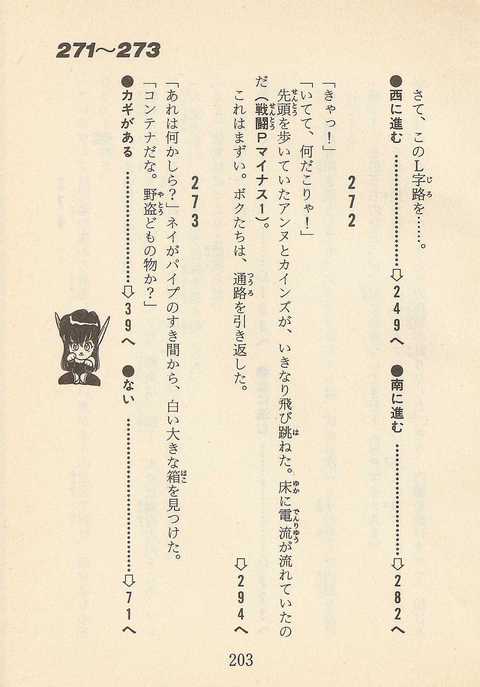 271〜273
さて、このL字路を……。
●西に進む…………⇨249へ ●南に進む…………⇨282へ
272
「きゃっ！」
「いてて、何だこりゃ！」
先頭を歩いていたアンヌとカインズが、いきなり飛び跳ねた。床に電流が流れていたの
だ（戦闘Pマイナス1）。
これはまずい。ボクたちは、通路を引き返した。
⇨294へ
273
「あれは何かしら？」ネイがパイプのすき間から、白い大きな箱を見つけた。
「コンテナだな。野盗どもの物か？」
●カギがある…………⇨39へ ●ない…………⇨71へ
203